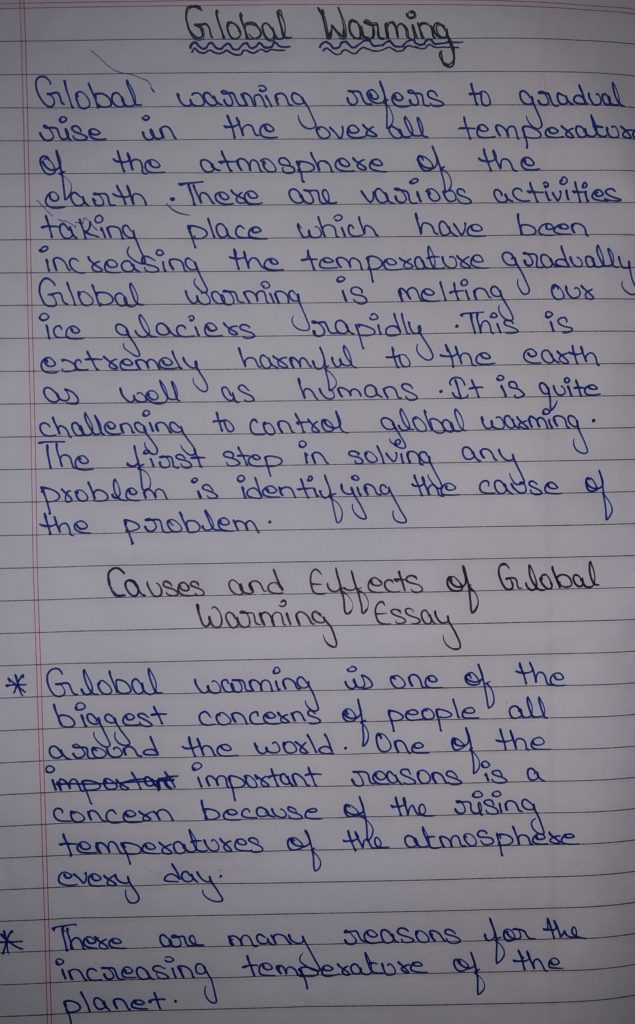 Global Warming
Global warming refers to gradual
rise in the over all temperature
of the atmosphere of the
earth. There are various activities
taking place which have been
increasing the temperature gradually
Global warming is melting our
ice glaciers rapidly. This is
extremely harmful to the earth
as well as humans. It is quite
challenging to control global warming.
The first step in solving any
problem is identifying the cause of
the problem.
Causes and Effects of Global
Warming Essay
* Global warming is one of the
biggest concerns of people all
around the world. One of the
important important reasons is a
concern because of the rising
temperatures of the atmosphere
every day.
* There are many reasons for the
increasing temperature of the
planet.